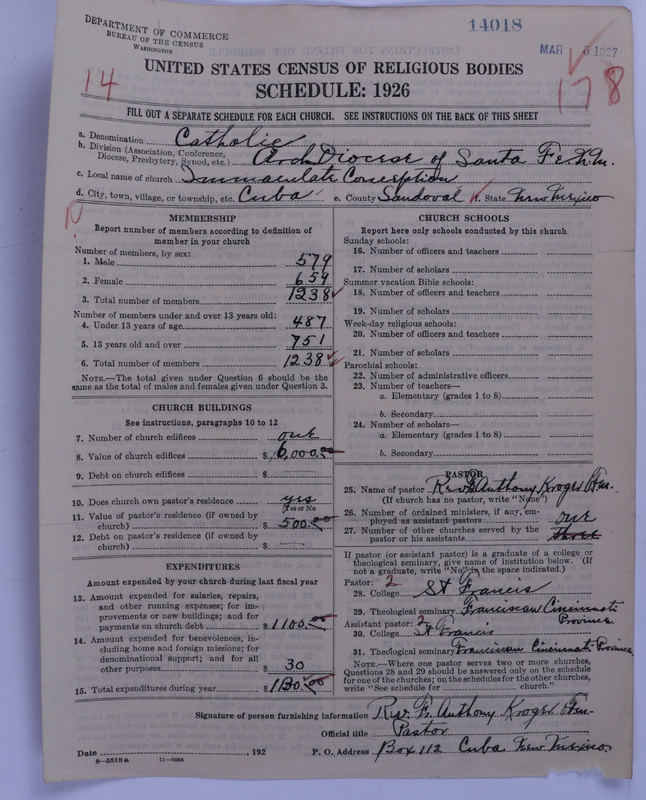 DEPARTMENT OF COMMERCE
BUREAU OF THE CENSUS
WASHINGTON
14018
MAR 5 1927
UNITED STATES CENSUS OF RELIGIOUS BODIES
SCHEDULE: 1926
14
178
FILL OUT A SEPARATE SCHEDULE FOR EACH CHURCH. SEE INSTRUCTIONS ON THE BACK OF THIS SHEET
a. Denomination Catholic
b. Division (Association, Conference, Diocese, Presbytery, Synod, etc.) Arch Diocese of Santa Fe N.M.
c. Local name of church Immaculate Conception
d. City, town, village, or township, etc. Cuba e. County Sandoval f. State New Mexico
N
MEMBERSHIP
Report number of members according to definition of
member in your church
Number of members, by sex:
1. Male 579
2. Female 659
3. Total number of members 1238
Number of members under and over 13 years old:
4. Under 13 years of age 487
5. 13 years old and over 751
6. Total number of members 1238
NOTE.—The total given under Question 6 should be
same as the total of males and females given under Question 3.
CHURCH BUILDINGS
See instructions, paragraphs 10 to 12
7. Number of church edifices one
8. Value of church edifices $ 6,000.00
9. Debt on church edifices $
10. Does church own pastor's residence yes
(Yes or No
11. Value of pastor's residence (if owned by
church) $ 500.00
12. Debt on pastor's residence (if owned by
church) $
EXPENDITURES
Amount expended by your church during last fiscal year
13. Amount expended for salaries, repairs,
and other running expenses; for im-
provements or new buildings; and for
payments on church debt $ 1100.00
14. Amount expended for benevolences, in-
cluding home and foreign missions; for
denominational support; and for all
other purposes $ 30
15. Total expenditures during year $ 1130.00
CHURCH SCHOOLS
Report here only schools conducted by this church
Sunday schools:
16. Number of officers and teachers
17. Number of scholars
Summer vacation Bible schools:
18. Number of officers and teachers
19. Number of scholars
Week-day religious schools:
20. Number of officers and teachers
21. Number of scholars
Parochial schools:
22. Number of administrative officers
23. Number of teachers—
a. Elementary (grades 1 to 8)
b. Secondary
24. Number of scholars—
a. Elementary (grades 1 to 8)
b. Secondary
PASTOR
25. Name of pastor Rev Fr Anthony Kroger Ofm.
(If church has no pastor, write "None")
26. Number of ordained ministers, if any, em-
ployed as assistant pastors one
27. Number of other churches served by the
pastor or his assistants three
If pastor (or assistant pastor) is a graduate of a college or
theological seminary, give name of institution below. (If
not a graduate, write "No" in the space indicated.)
Pastor: 2
28. College St Francis
29. Theological seminary Franciscan Cincinnati
Province
Assistant pastor: 2
30. College St Francis
31. Theological seminary Franciscan Cincinnati Province
NOTE.—Where one pastor serves two or more churches,
Questions 28 and 29 should be answered only on the schedule
for one of the churches; on the schedules for the other churches,
write "See schedule for church."
Signature of person furnishing information Rev. Fr. Anthony Kroger Ofm.
Official title Pastor
Date , 192 P. O. Address Box 112 Cuba New Mexico.
8—5518a 11—9084